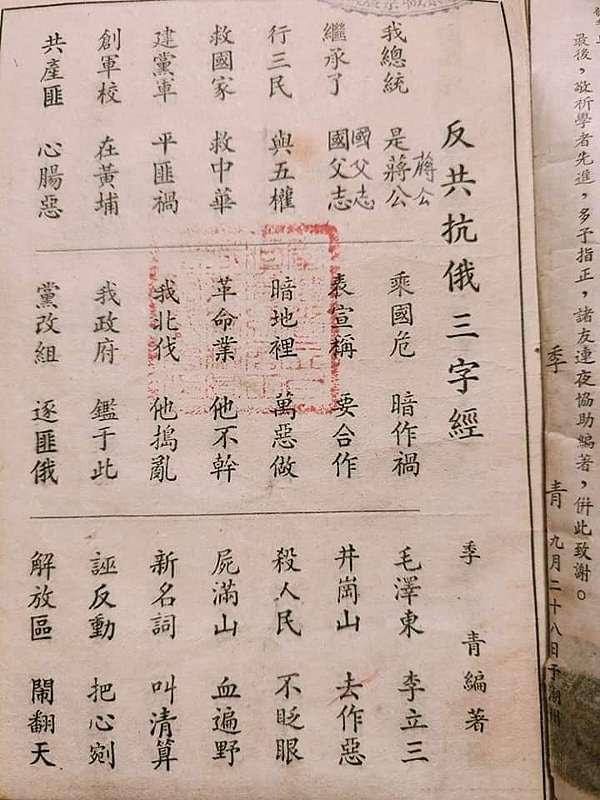 最後，敬祈學者先進，多予指正，諸友連夜協助編著，併此致謝。
季 青 九月二十八日于潮州
反共抗俄三字經
季 青編著
我總統 是蔣公
蔣公
繼承了 國父志
國父志
行三民 與五權
救國家 救中華
建黨軍 平匪禍
創軍校 在黃埔
共產匪 心腸惡
乘國危 暗作禍
表宣稱 要合作
暗地裡 萬惡做
革命業 他不幹
我北伐 他搗亂
我政府 鑑于此
黨改組 逐匪俄
毛澤東 李立三
井崗山 去作惡
殺人民 不眨眼
屍滿山 血遍野
新名詞 叫清算
誣反動 把心剜
解放區 鬧翻天